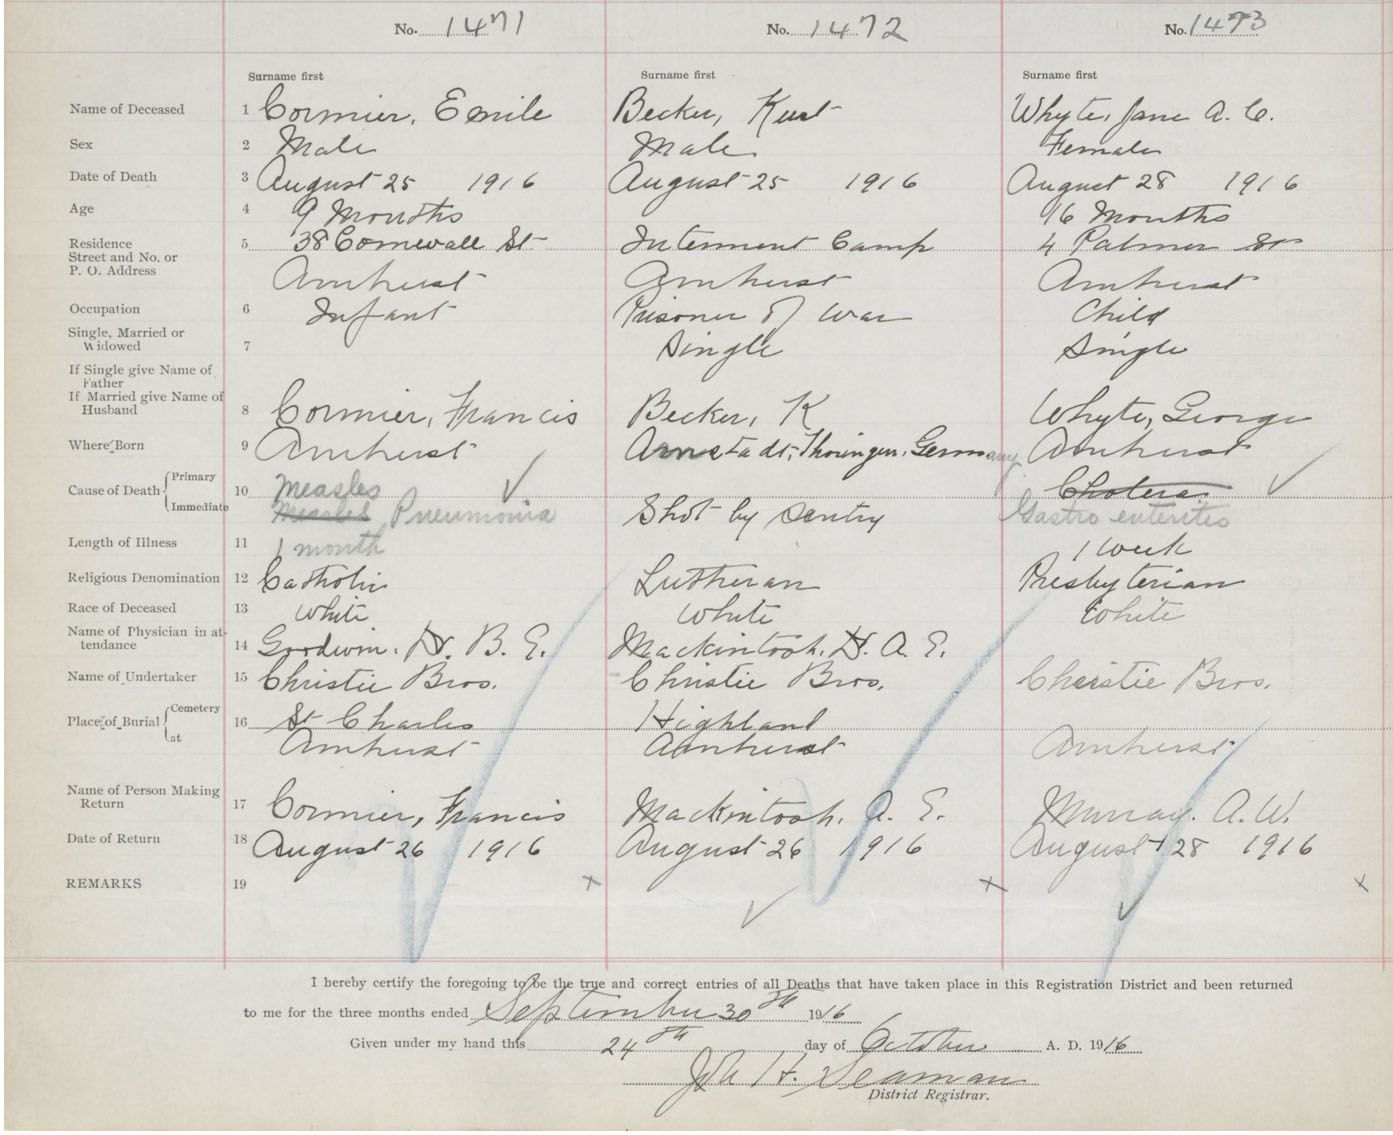 No. 1471 No. 1472 No. 1473
Surname first Surname first Surname first
Name of Deceased 1 Cormier, Emile Becker, Kurt Whyte, Jane A. C.
Sex 2 Male Male Female
Date of Death 3 August 25 1916 August 25 1916 August 28 1916
Age 4 9 Months 16 Months
Residence 5 38 Cornwall St Internment Camp 4 Palmer St
Street and No. or
P. O. Address Amherst Amherst Amherst
Occupation 6 Infant Prisoner of War Child
Single, Married or
Widowed 7 Single Single
If Single give Name of
Father
If Married give Name of
Husband 8 Cormier, Francis Becker, K Whyte, George
Where Born 9 Amherst Arnstadt, Thoringen, Germany Amherst
Cause of Death Primary 10 Measles Cholera
Immediate Measles Pneumonia Shot by Sentry Gastro enteritis
Length of Illness 11 1 month 1 week
Religious Denomination 12 Catholic Lutheran Presbyterian
Race of Deceased 13 White White White
Name of Physician in at-
tendance 14 Goodwin, Dr. B. E. Mackintosh, Dr. A. E.
Name of Undertaker 15 Christie Bros. Christie Bros. Christie Bros.
Place of Burial Cemetery 16 St Charles Highland
at Amherst Amherst Amherst
Name of Person Making
Return 17 Cormier, Francis Mackintosh, A. E. Murray, A. W.
Date of Return 18 August 26 1916 August 26 1916 August 28 1916
REMARKS 19
I hereby certify the foregoing to be the true and correct entries of all Deaths that have taken place in this Registration District and been returned
to me for the three months ended September 30th 1916
Given under my hand this 24th day of October A. D. 1916
H. Seaman
District Registrar.